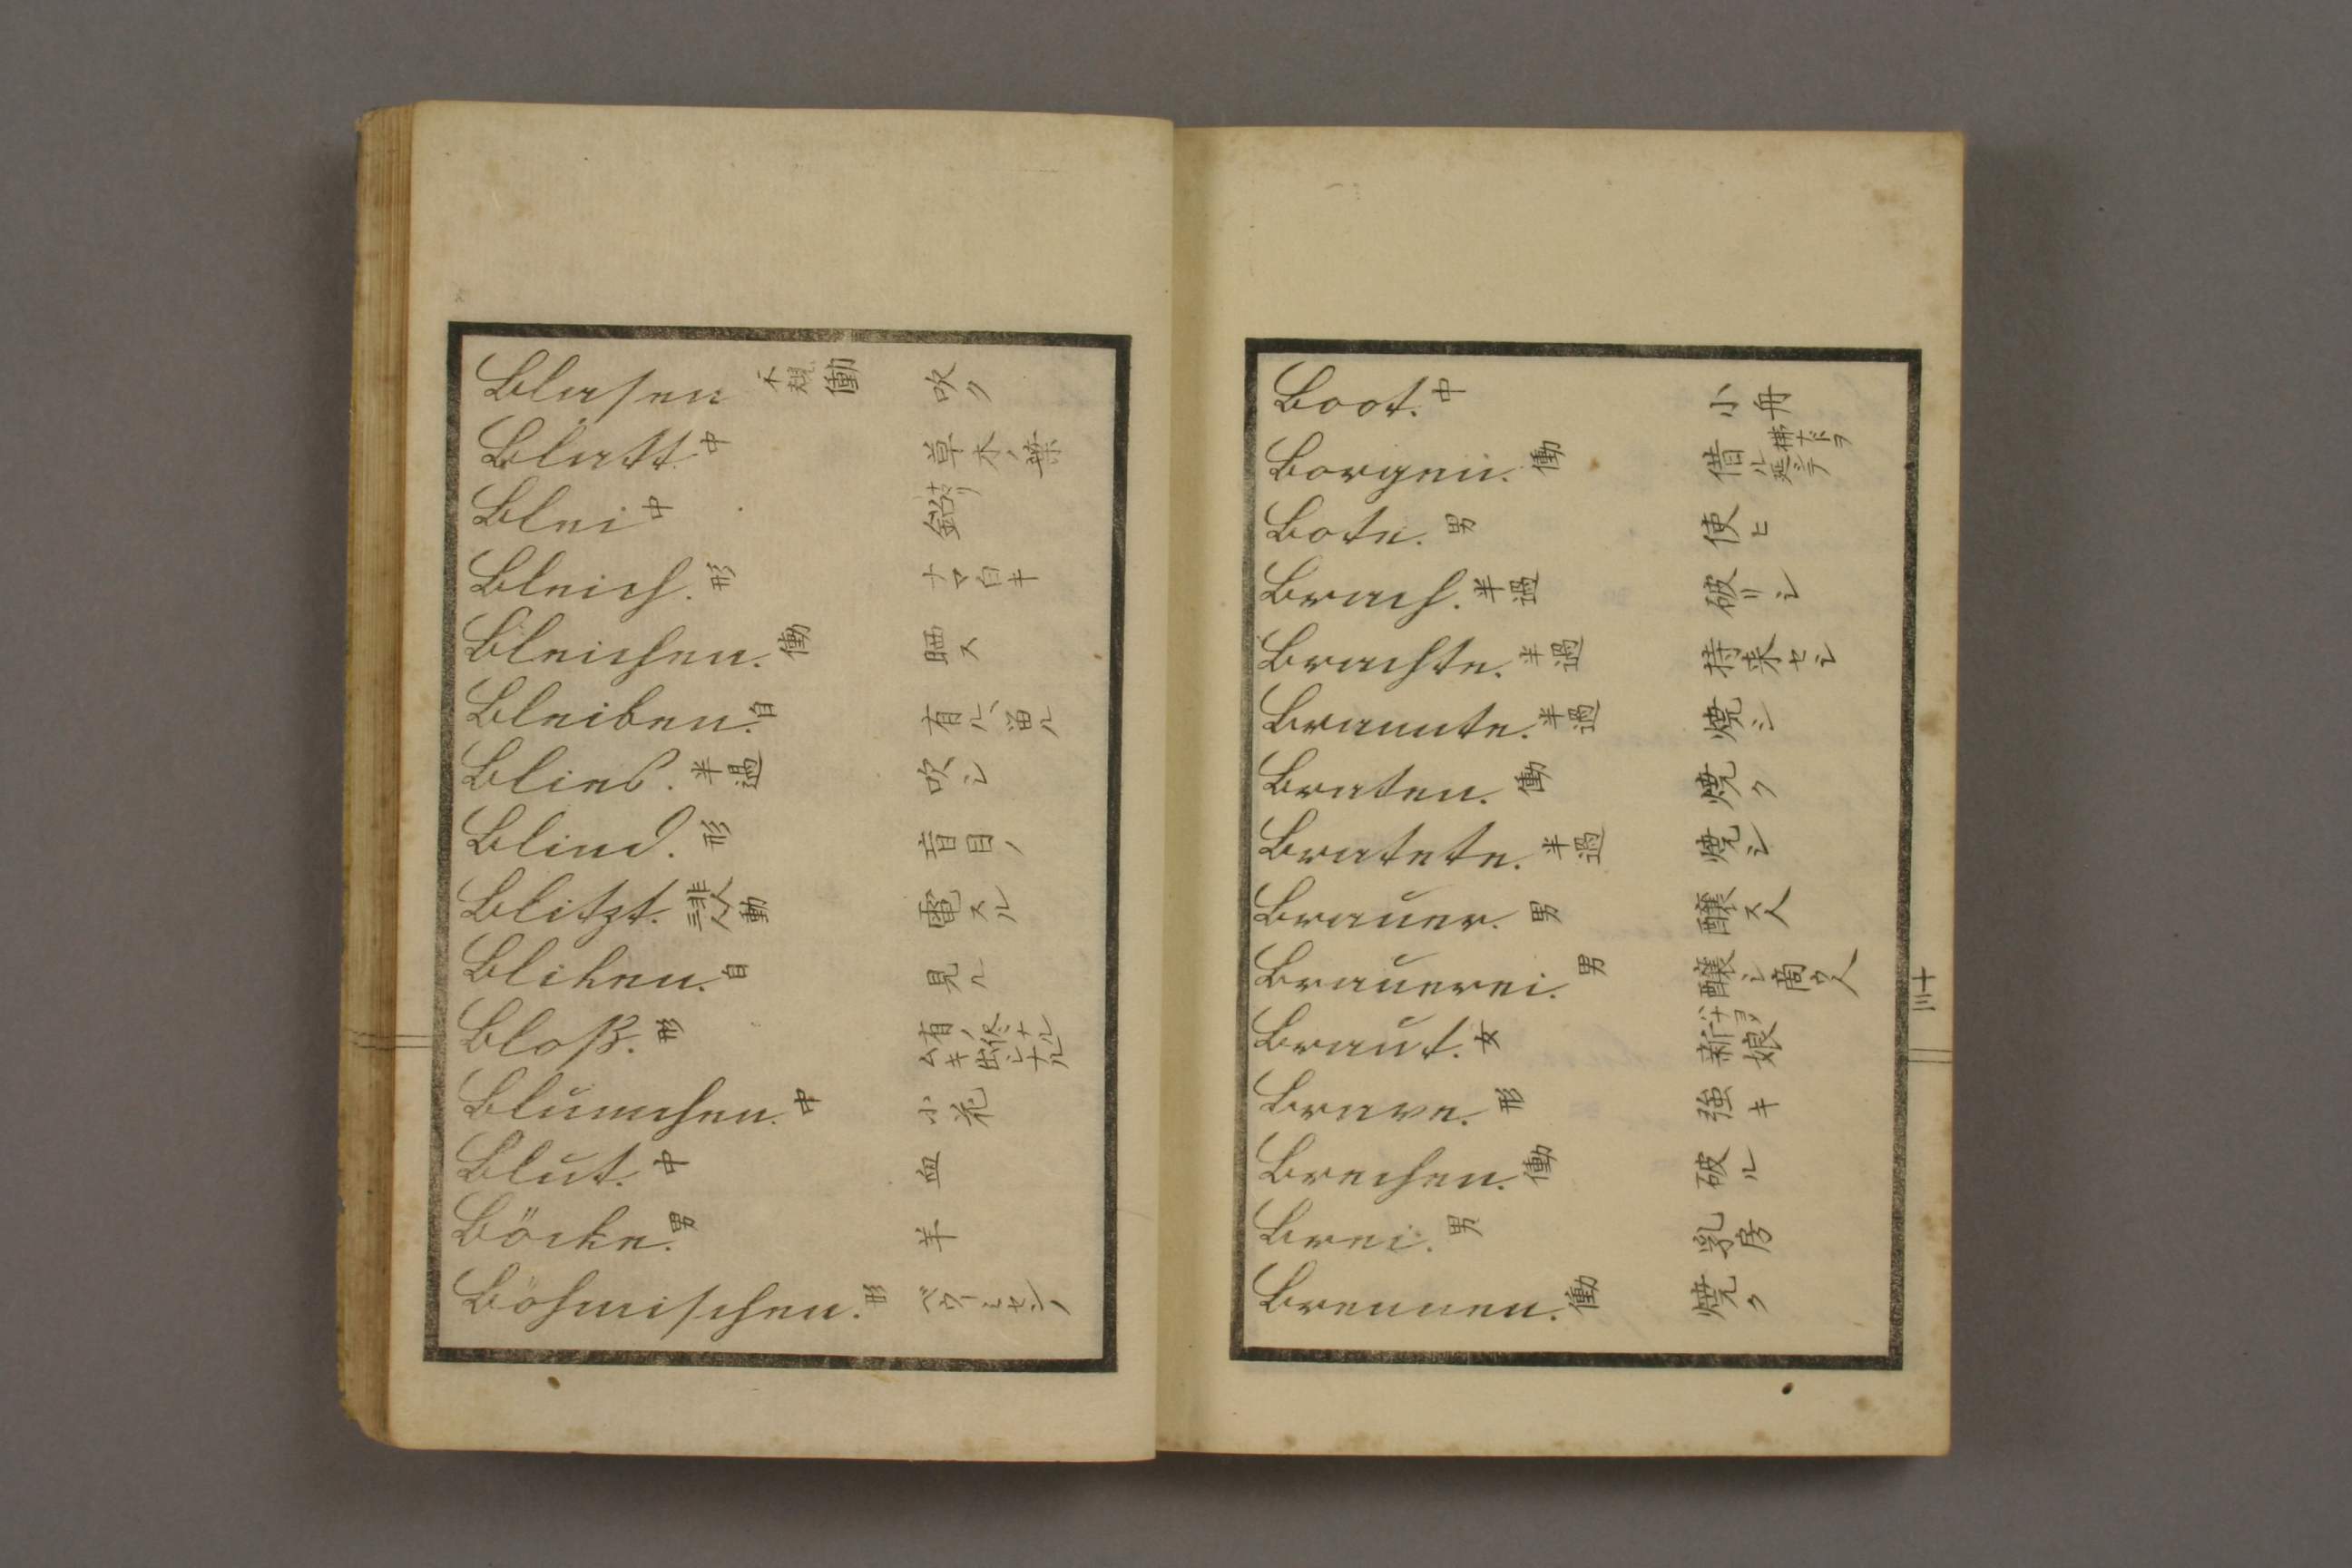 Blasen 不規 働 吹ク
Blatt 中 草木ノ葉
Blei 中 鉛ナマリ
Bleich. 形 ナマ白キ
Bleichen. 働 晒ス
Bleiben. 自 有ル、畄ル
Blies. 半過 吹シ
Blind. 形 盲目ノ
Blitzt. 非人 動 電スル
Bliken. 自 見ル
Bloß. 形
Blumchen. 中 小花
Blut. 中 血
Böcke. 男 羊
Böhmischen. 形
Boot. 中 小舟
Borgen. 働 借ル
Bote. 男 使ヒ
Brach. 半過 破リシ
Brachte. 半過 持来セシ
Brannte. 半過 焼シ
Braten. 働 焼ク
Bratete. 半過 焼シ
Brauer. 男 醸ス人
Brauerei. 男 醸シ商ウ人
Braut. 女 新娘
Brave. 形 強キ
Brechen. 働 破ル
Brei. 男 乳房
Brennen. 働 焼ク
十三